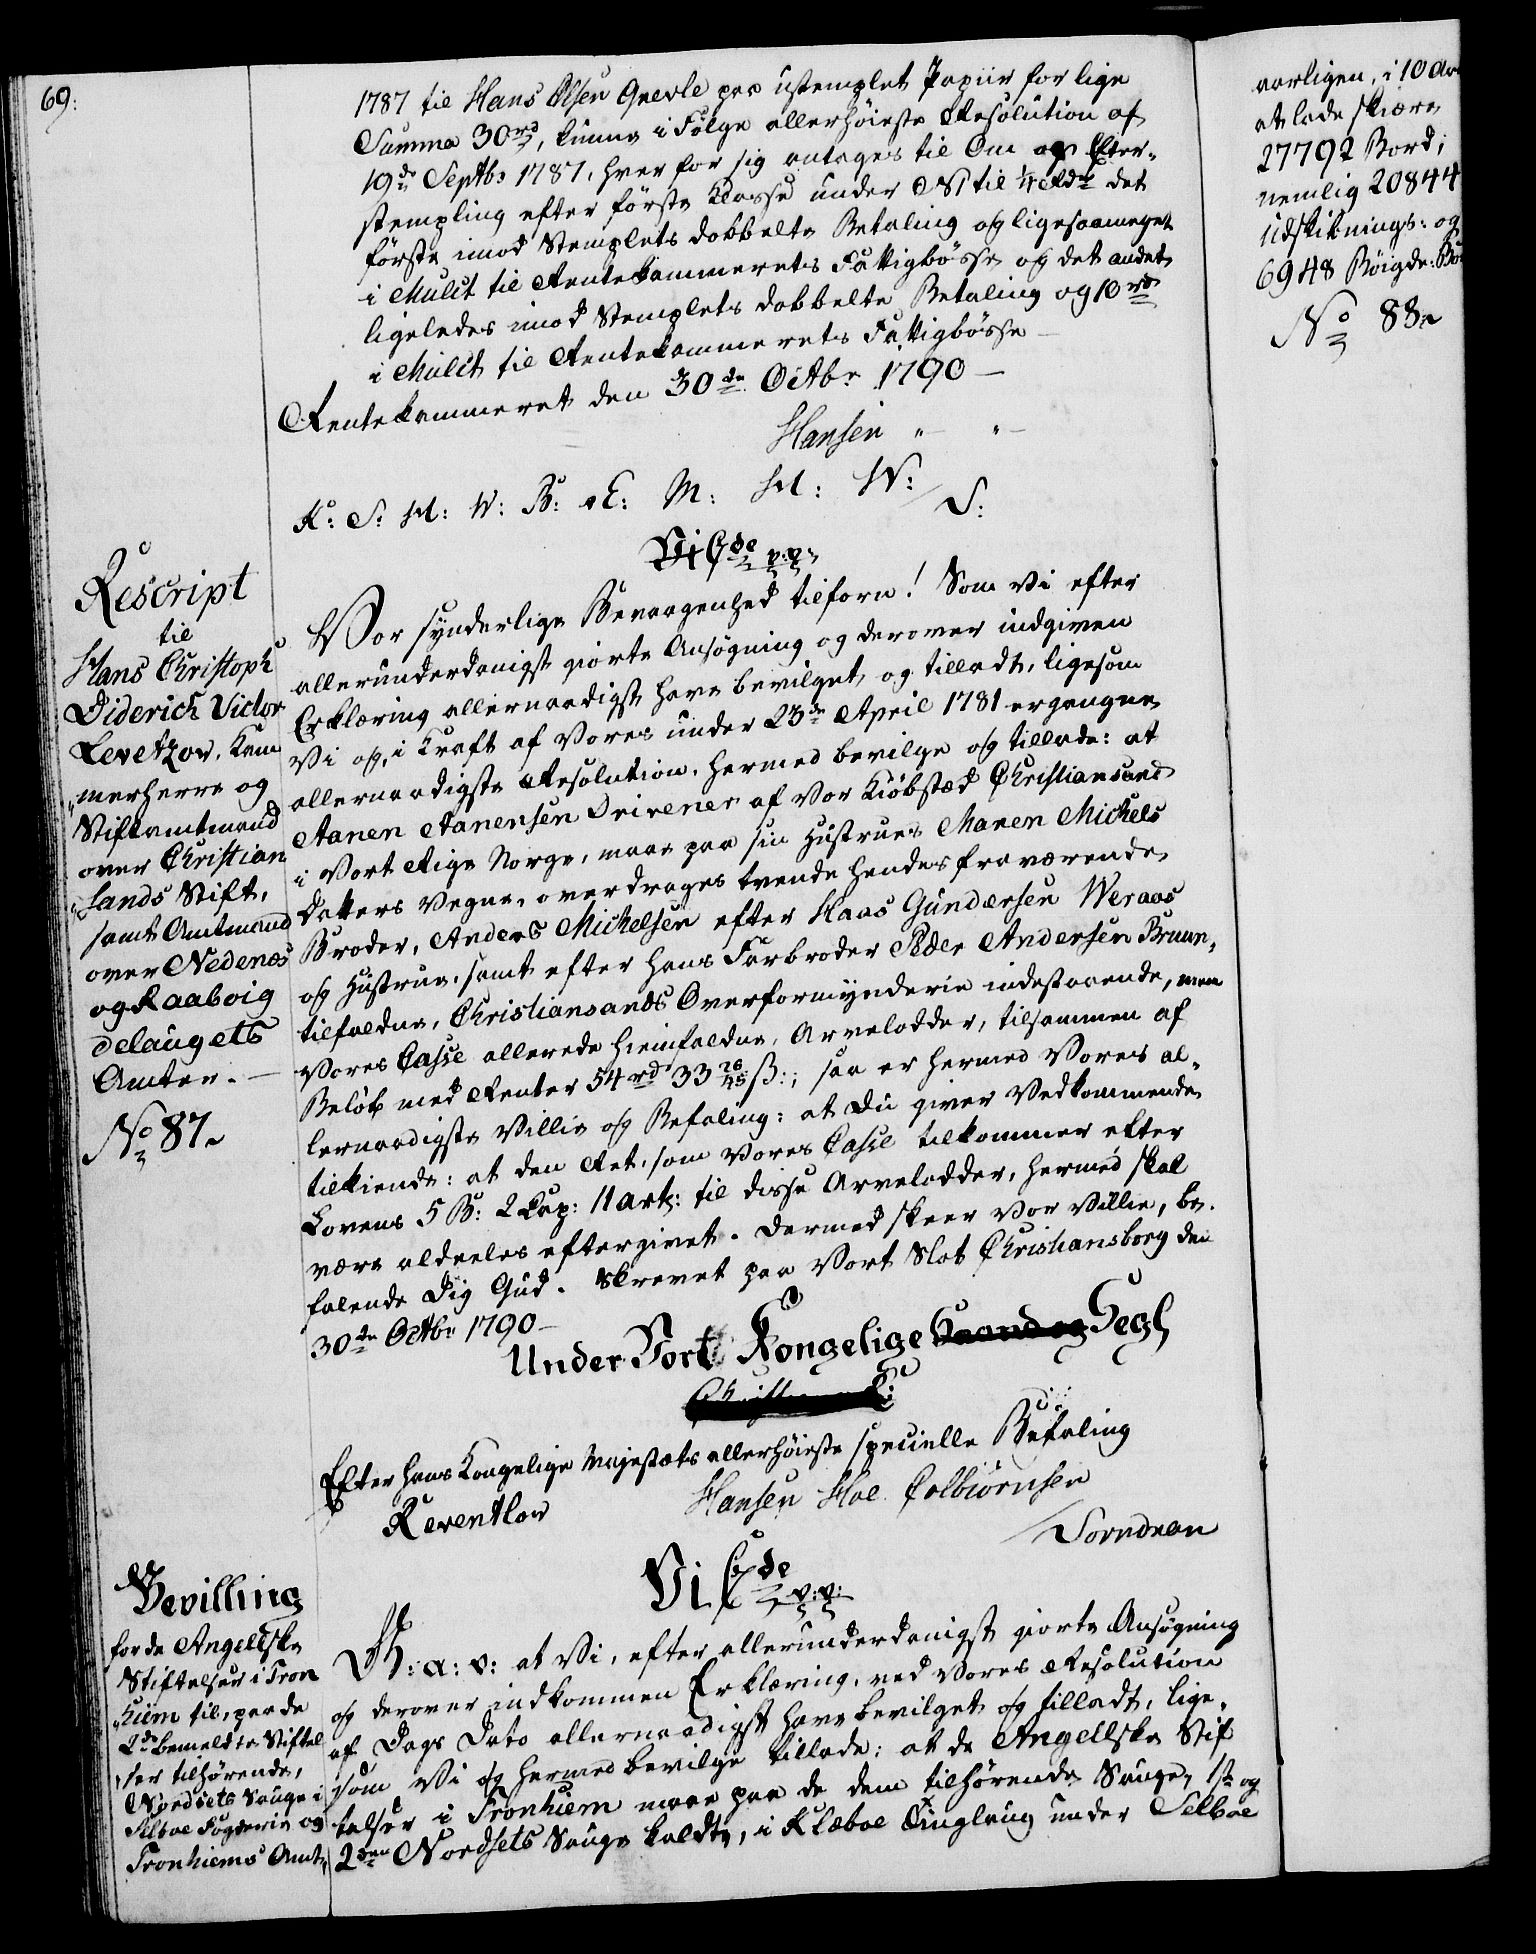 69:
1787 til Hans Olsen Grevle paa ustemplet Papiir for lige
Summa 30rd, kunne i Følge allerhøieste Resolution af
19de Septbr 1787, hver for sig antages til Om og Efter-
stempling efter første Klasse under No 1 til 1/4 Rdr det
første imod Stemplets dobbelte Betaling og ligesaameget
i Mulct til Rentekammerets Fattigbøsse og det andet
ligeledes imod Stemplets dobbelte Betaling og 10rd
i Mulct til Rentekammerets Fattigbøsse -
Rentekammeret den 30de Octbr 1790 -
Hansen " - " -
K: S: H: W: B: E: M: H: W:
/ S:
Vi C 7de p:p:
Rescript
til
Hans Christoph
Diderich Victor
Levetzow, Kam
"merherre og
Stiftamtmand
over Christian
"sands Stift,
samt Amtmand
over Nedenæs
og Raaboig
delaugets
Amter. -
No 87.
Vor synderlige Bevaagenhed tilforn! Som Vi efter
allerunderdanigst giorte Ansøgning og derover indgiven
Erklæring allernaadigst have bevilget og tilladt, ligesom
Vi og, i Kraft af Vores under 23de April 1781 ergangne
allernaadigste Resolution, hermed bevilge og tillade: at
Aanen Aanensen Drivenes af Vor Kiøbstæd Christiansand
i Vort Rige Norge, maae paa sin Hustrues Maren Mickels
Datters Vegne, overdrages tvende hendes fraværende
Broder, Anders Mickelsen efter Haas Gundersen Weraas
og Hustrue, samt efter hans Farbroder Peder Andersen Bruun,
tilfaldne, Christiansands Overformynderie indestaaende, men
Vores Casse allerede hiemfaldne, Arvelodder, tilsammen af
Beløb med Renter 54rd 33 26/45 ß:; saa er hermed Vores al-
lernaadigste Villie og Befaling: at Du giver Vedkommende
tilkiende: at den Ret, som Vores Casse tilkommer efter
Lovens 5 B: 2 Cap: 11 art: til disse Arvelodder, hermed skal
være aldeeles eftergivet. Dermed skeer Vor Villie, be-
falende Dig Gud. Skrevet paa Vort Slot Christiansborg den
30de Octbr 1790 -
Under Vort Kongelige Haand og Segl
Efter hans Kongelige Majestæts allerhøieste specielle Befaling
Reventlow Hansen Hoe Colbiørnsen
/
Vi C 7de p:p:
Bevilling
for de Angellske
Stiftelser i Tron
"hiem til, paa de
2de bemeldte Stiftel
"ser tilhørende,
Nordsets Sauge i
Selboe Fogderie og
Tronhiems Amt,
G: a: v: at Vi, efter allerunderdanigst giorte Ansøgning
og derover indkommen Erklæring, ved Vores Resolution
af Dags Dato allernaadigst have bevilget og tilladt, lige-
som Vi og hermed bevilge tillade: at de Angellske Stif
telser i Tronhiem maae paa de dem tilhørende Sauge, 1ste og
2den Nordsets Sauge kaldte, i Klæboe Tinglaug under Selboe
aarligen, i 10 Aar
at lade skiære
27792 Bord;
nemlig 20844
Udskibnings: og
6948 Bøigde:
No 88.